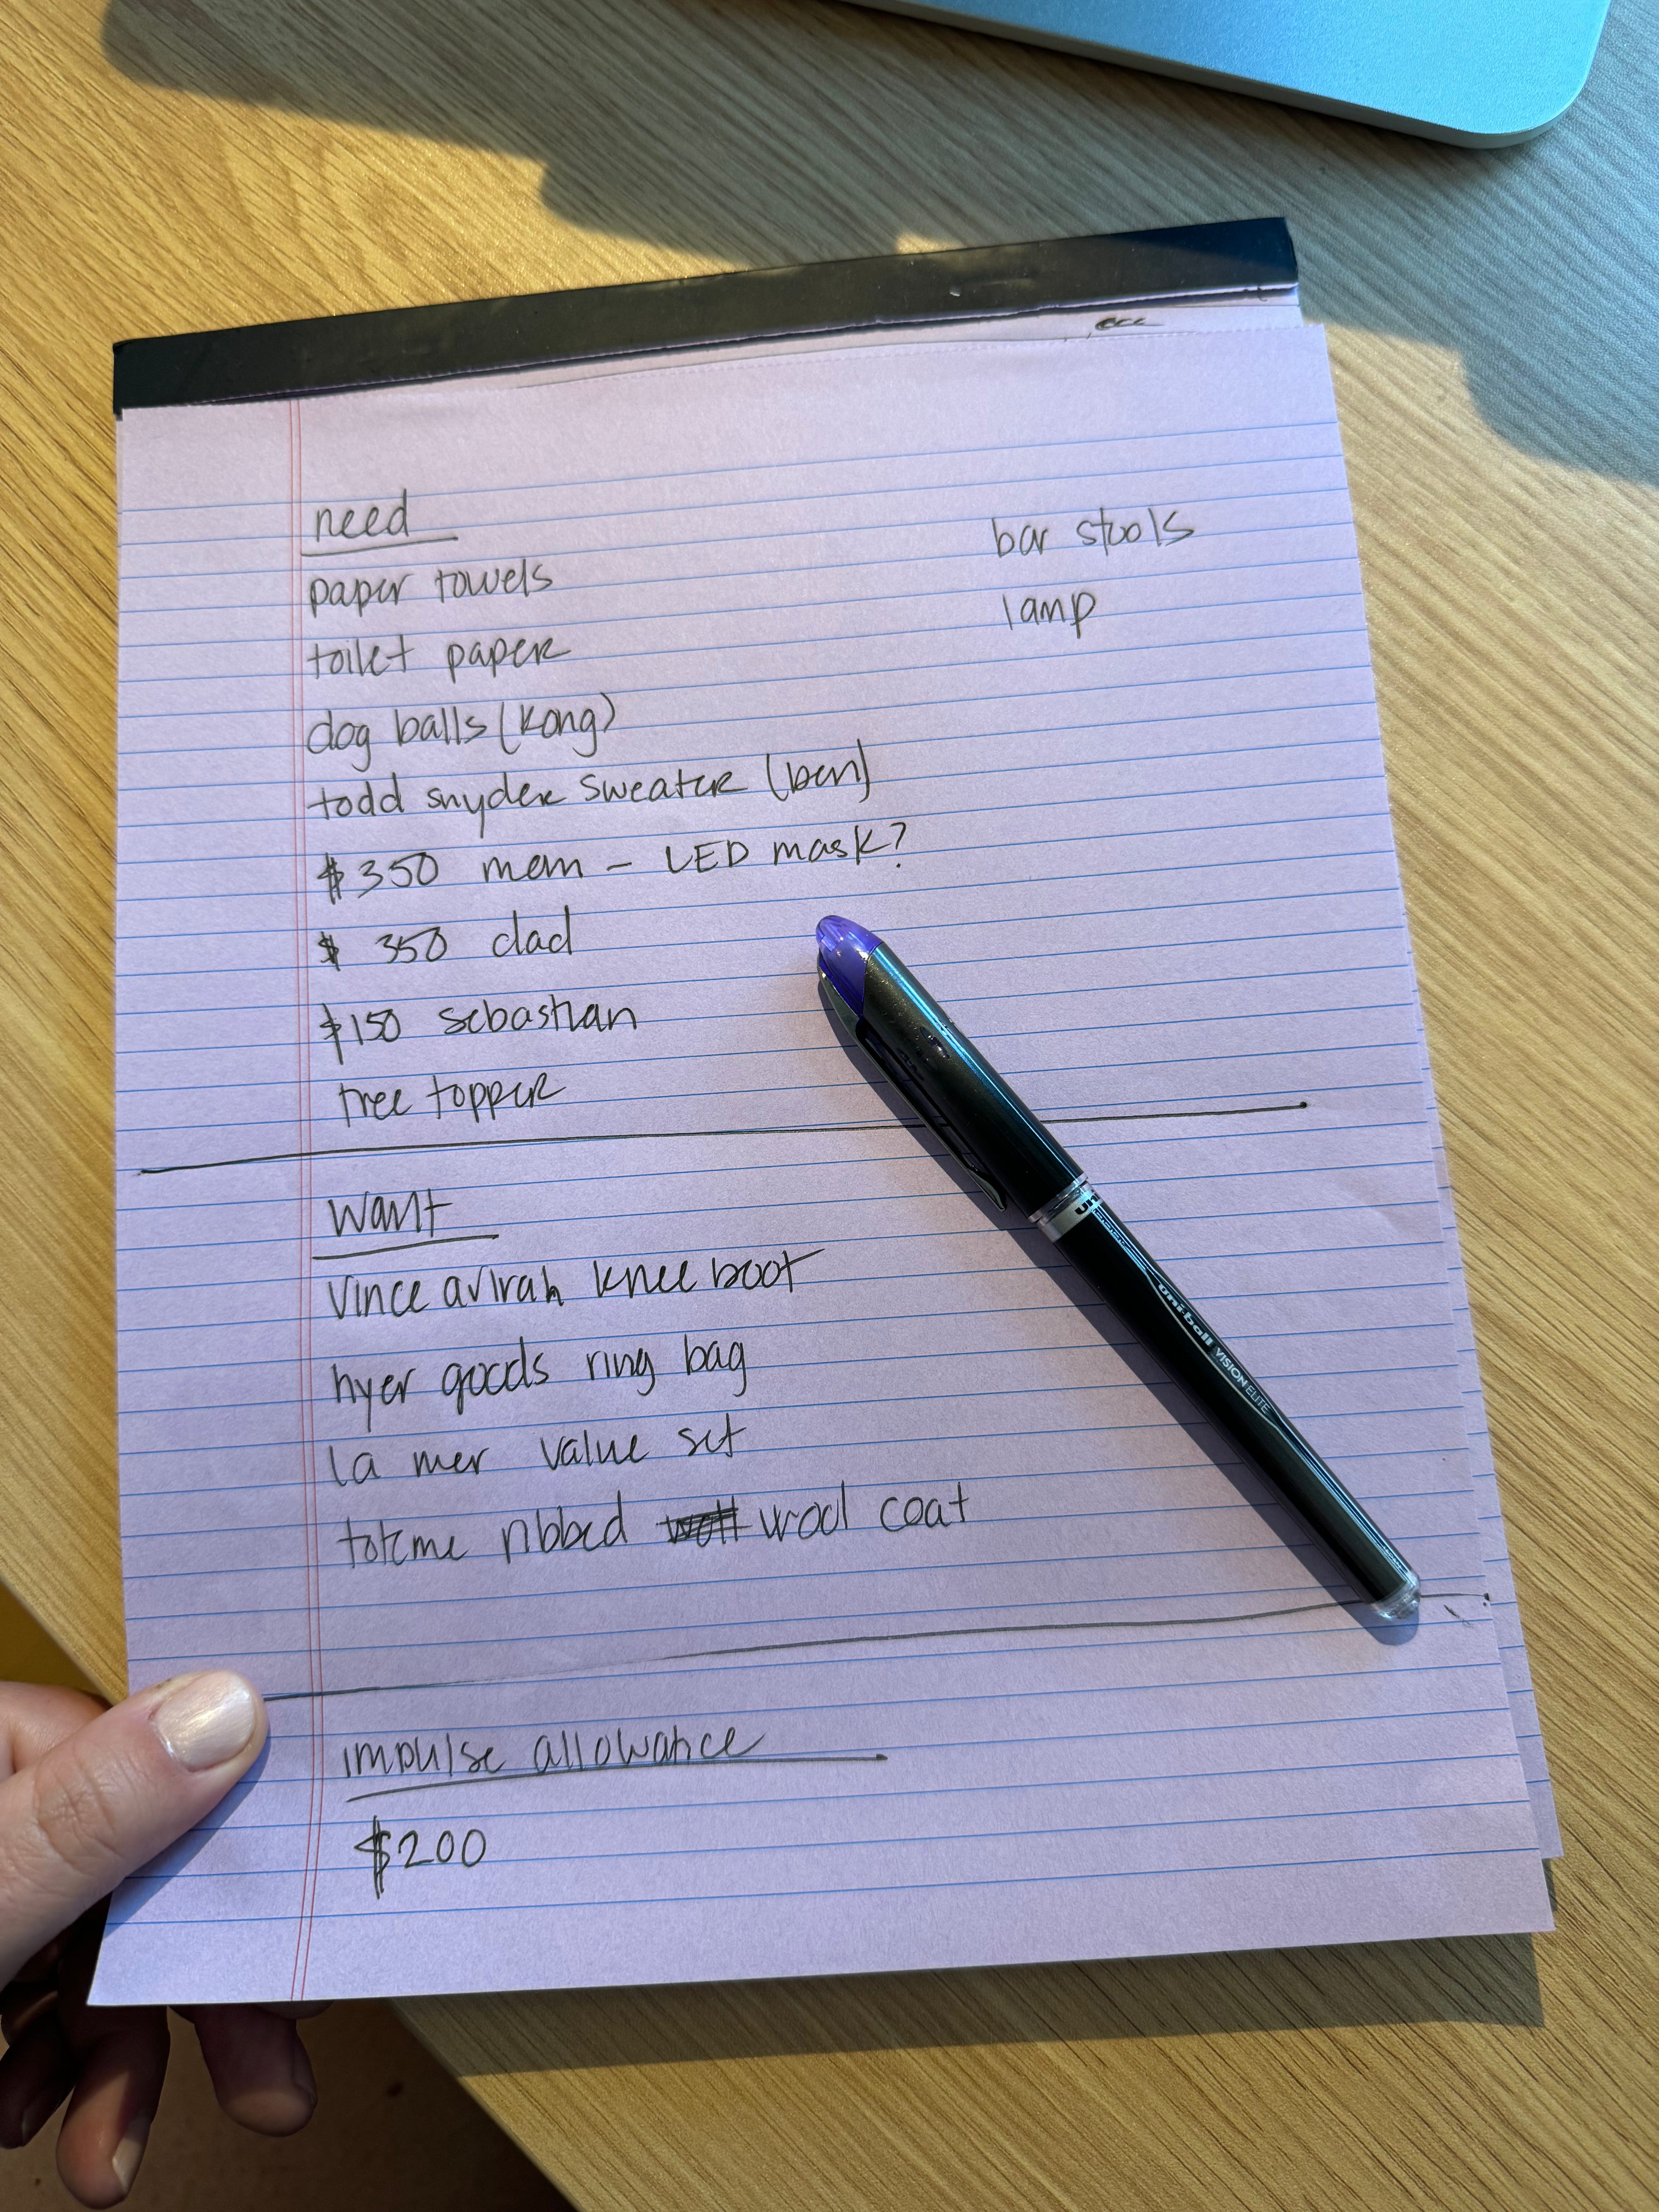 need
paper towels
toilet paper
dog balls (kong)
todd snyder sweater (ben)
$350 mom - LED mask?
$ 350 dad
$150 sebastian
tree topper
bar stools
lamp
want
vince avirah knee boot
hyer goods ring bag
la mer value set
toteme ribbed wool coat
impulse allowance
$200
uni
uni-ball VISION ELITE